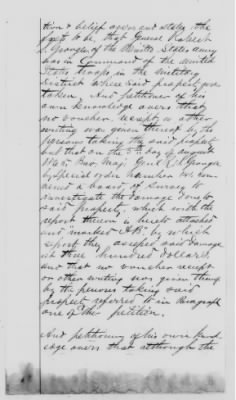 tion & belief avers and states the
fact to be, that General Robert
S. Granger of the United States army
was in Command of the United
States troops in the military
district where said property was
taken, And petitioner of his
own knowledge avers that
no voucher receipt or other
writing was given therefor by the
persons taking the said property
but that on the day of August
1865 Bv. Maj. Genl R. S. Granger
by special order number con-
vened a board of Survey to
investigate the damage done to
said property, which with the
report thereon is hereto attached
and marked by which
report they assessed said damage
at three hundred dollars,
and that no voucher receipt
or other writing was given therefor
by the persons taking said
property referred to in Paragraph
one of this petition.
And petitioner of his own knowl-
edge avers that although the